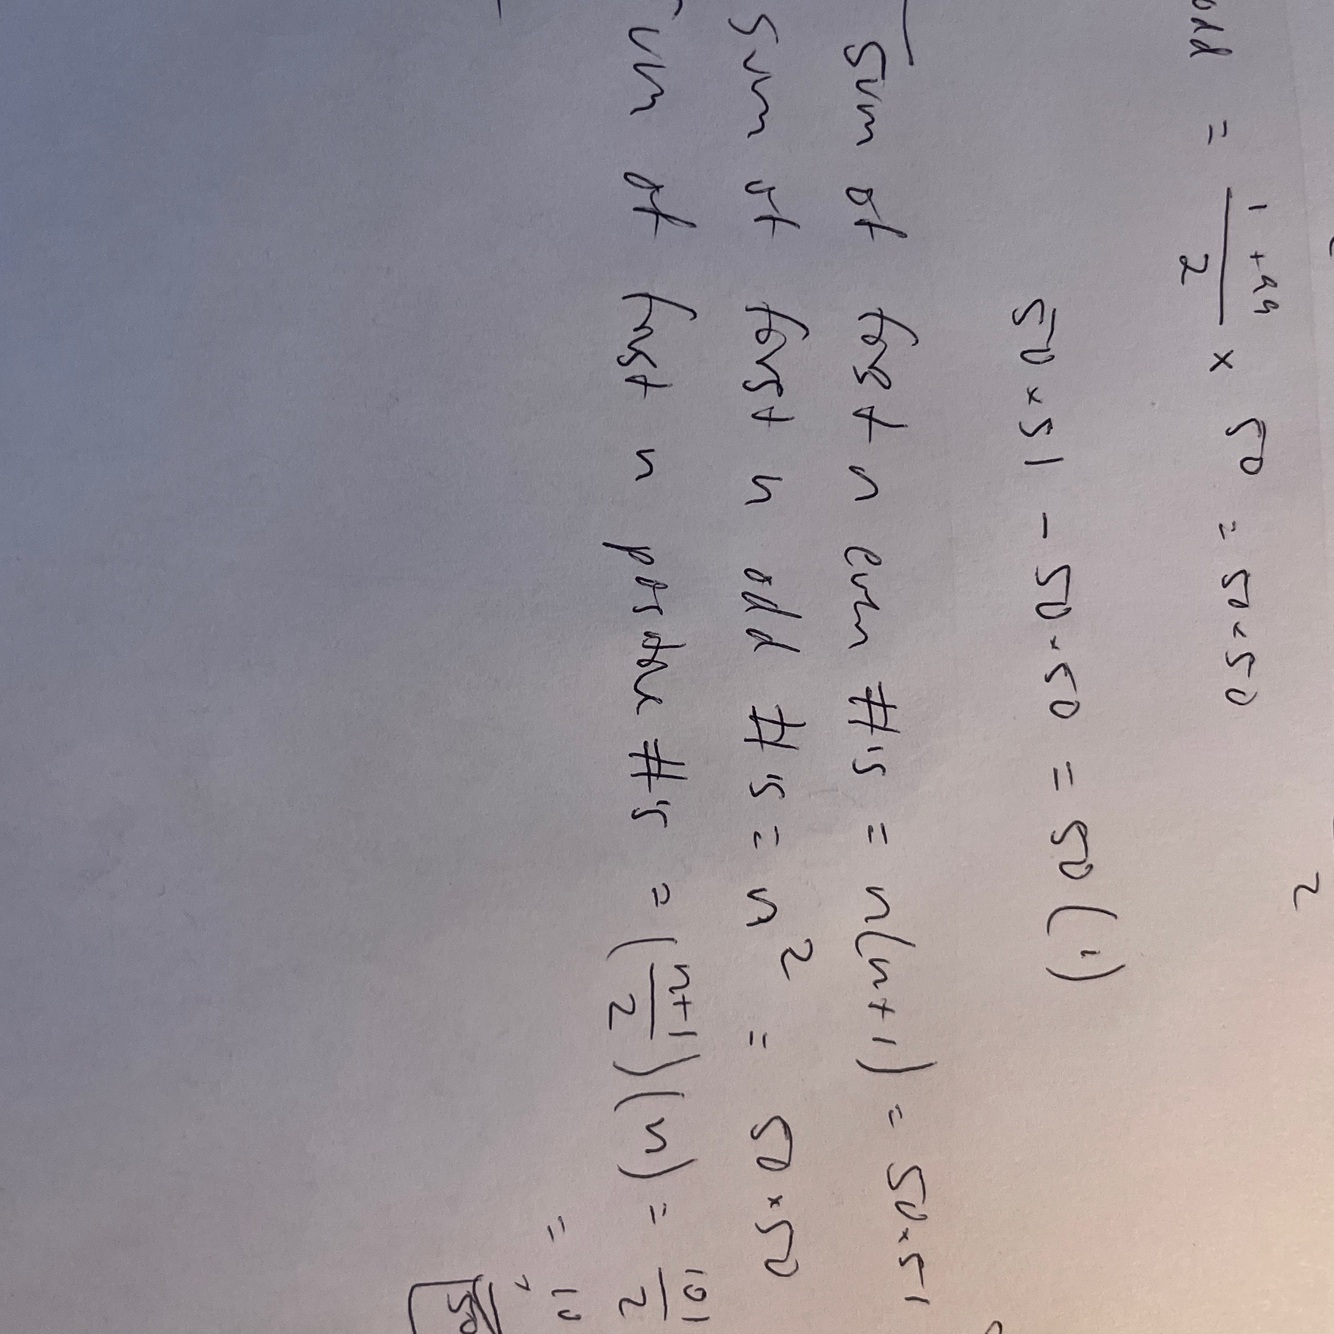 odd = \frac{1+99}{2} × 50 = 50×50
50×51 - 50×50 = 50(1)
Sum of first n even #'s = n(n+1) = 50×51
Sum of first n odd #'s = n² = 50×50
Sum of first n positive #'s = (\frac{n+1}{2})(n) = \frac{101}{2}
=